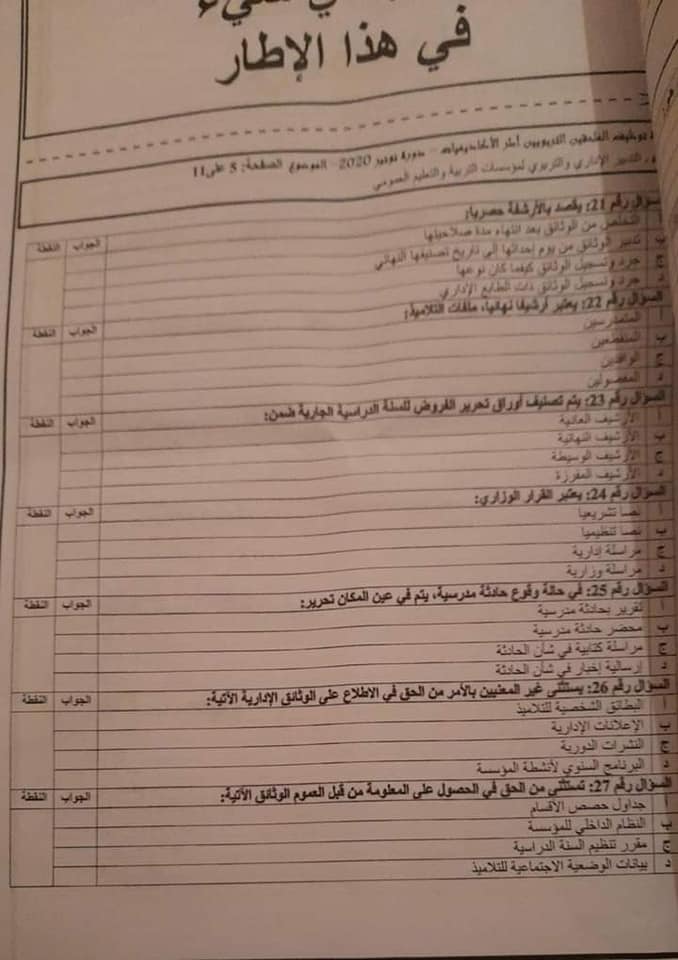 في هذا الإطار
توظيف الملحقين التربويين أطر الأكاديميات - دورة نونبر 2020 - الموضوع الصفحة: 5 على 11
التدبير الإداري والتربوي لمؤسسات التربية والتعليم العمومي
السؤال رقم 21: يقصد بالأرشفة حصريا:
أ التخلص من الوثائق بعد انتهاء مدة صلاحيتها الجواب النقطة
ب تدبير الوثائق من يوم إحداثها إلى تاريخ تصنيفها النهائي
ج جرد وتسجيل الوثائق كيفما كان نوعها
د جرد وتسجيل الوثائق ذات الطابع الإداري
السؤال رقم 22: يعتبر أرشيفا نهائيا، ملفات التلاميذ:
أ المتمدرسين الجواب النقطة
ب المنقطعين
ج الوافدين
د المفصولين
السؤال رقم 23: يتم تصنيف أوراق تحرير الفروض للسنة الدراسية الجارية ضمن:
أ الأرشيف العادية الجواب النقطة
ب الأرشيف النهائية
ج الأرشيف الوسيطة
د الأرشيف المفرزة
السؤال رقم 24: يعتبر القرار الوزاري:
أ نصا تشريعيا الجواب النقطة
ب نصا تنظيميا
ج مراسلة إدارية
د مراسلة وزارية
السؤال رقم 25: في حالة وقوع حادثة مدرسية، يتم في عين المكان تحرير:
أ تقرير بحادثة مدرسية الجواب النقطة
ب محضر حادثة مدرسية
ج مراسلة كتابية في شأن الحادثة
د إرسالية إخبار في شأن الحادثة
السؤال رقم 26: يستثنى غير المعنيين بالأمر من الحق في الاطلاع على الوثائق الإدارية الآتية:
أ البطائق الشخصية للتلاميذ الجواب النقطة
ب الإعلانات الإدارية
ج النشرات الدورية
د البرنامج السنوي لأنشطة المؤسسة
السؤال رقم 27: تستثنى من الحق في الحصول على المعلومة من قبل العموم الوثائق الآتية:
أ جداول حصص الأقسام الجواب النقطة
ب النظام الداخلي للمؤسسة
ج مقرر تنظيم السنة الدراسية
د بيانات الوضعية الاجتماعية للتلاميذ